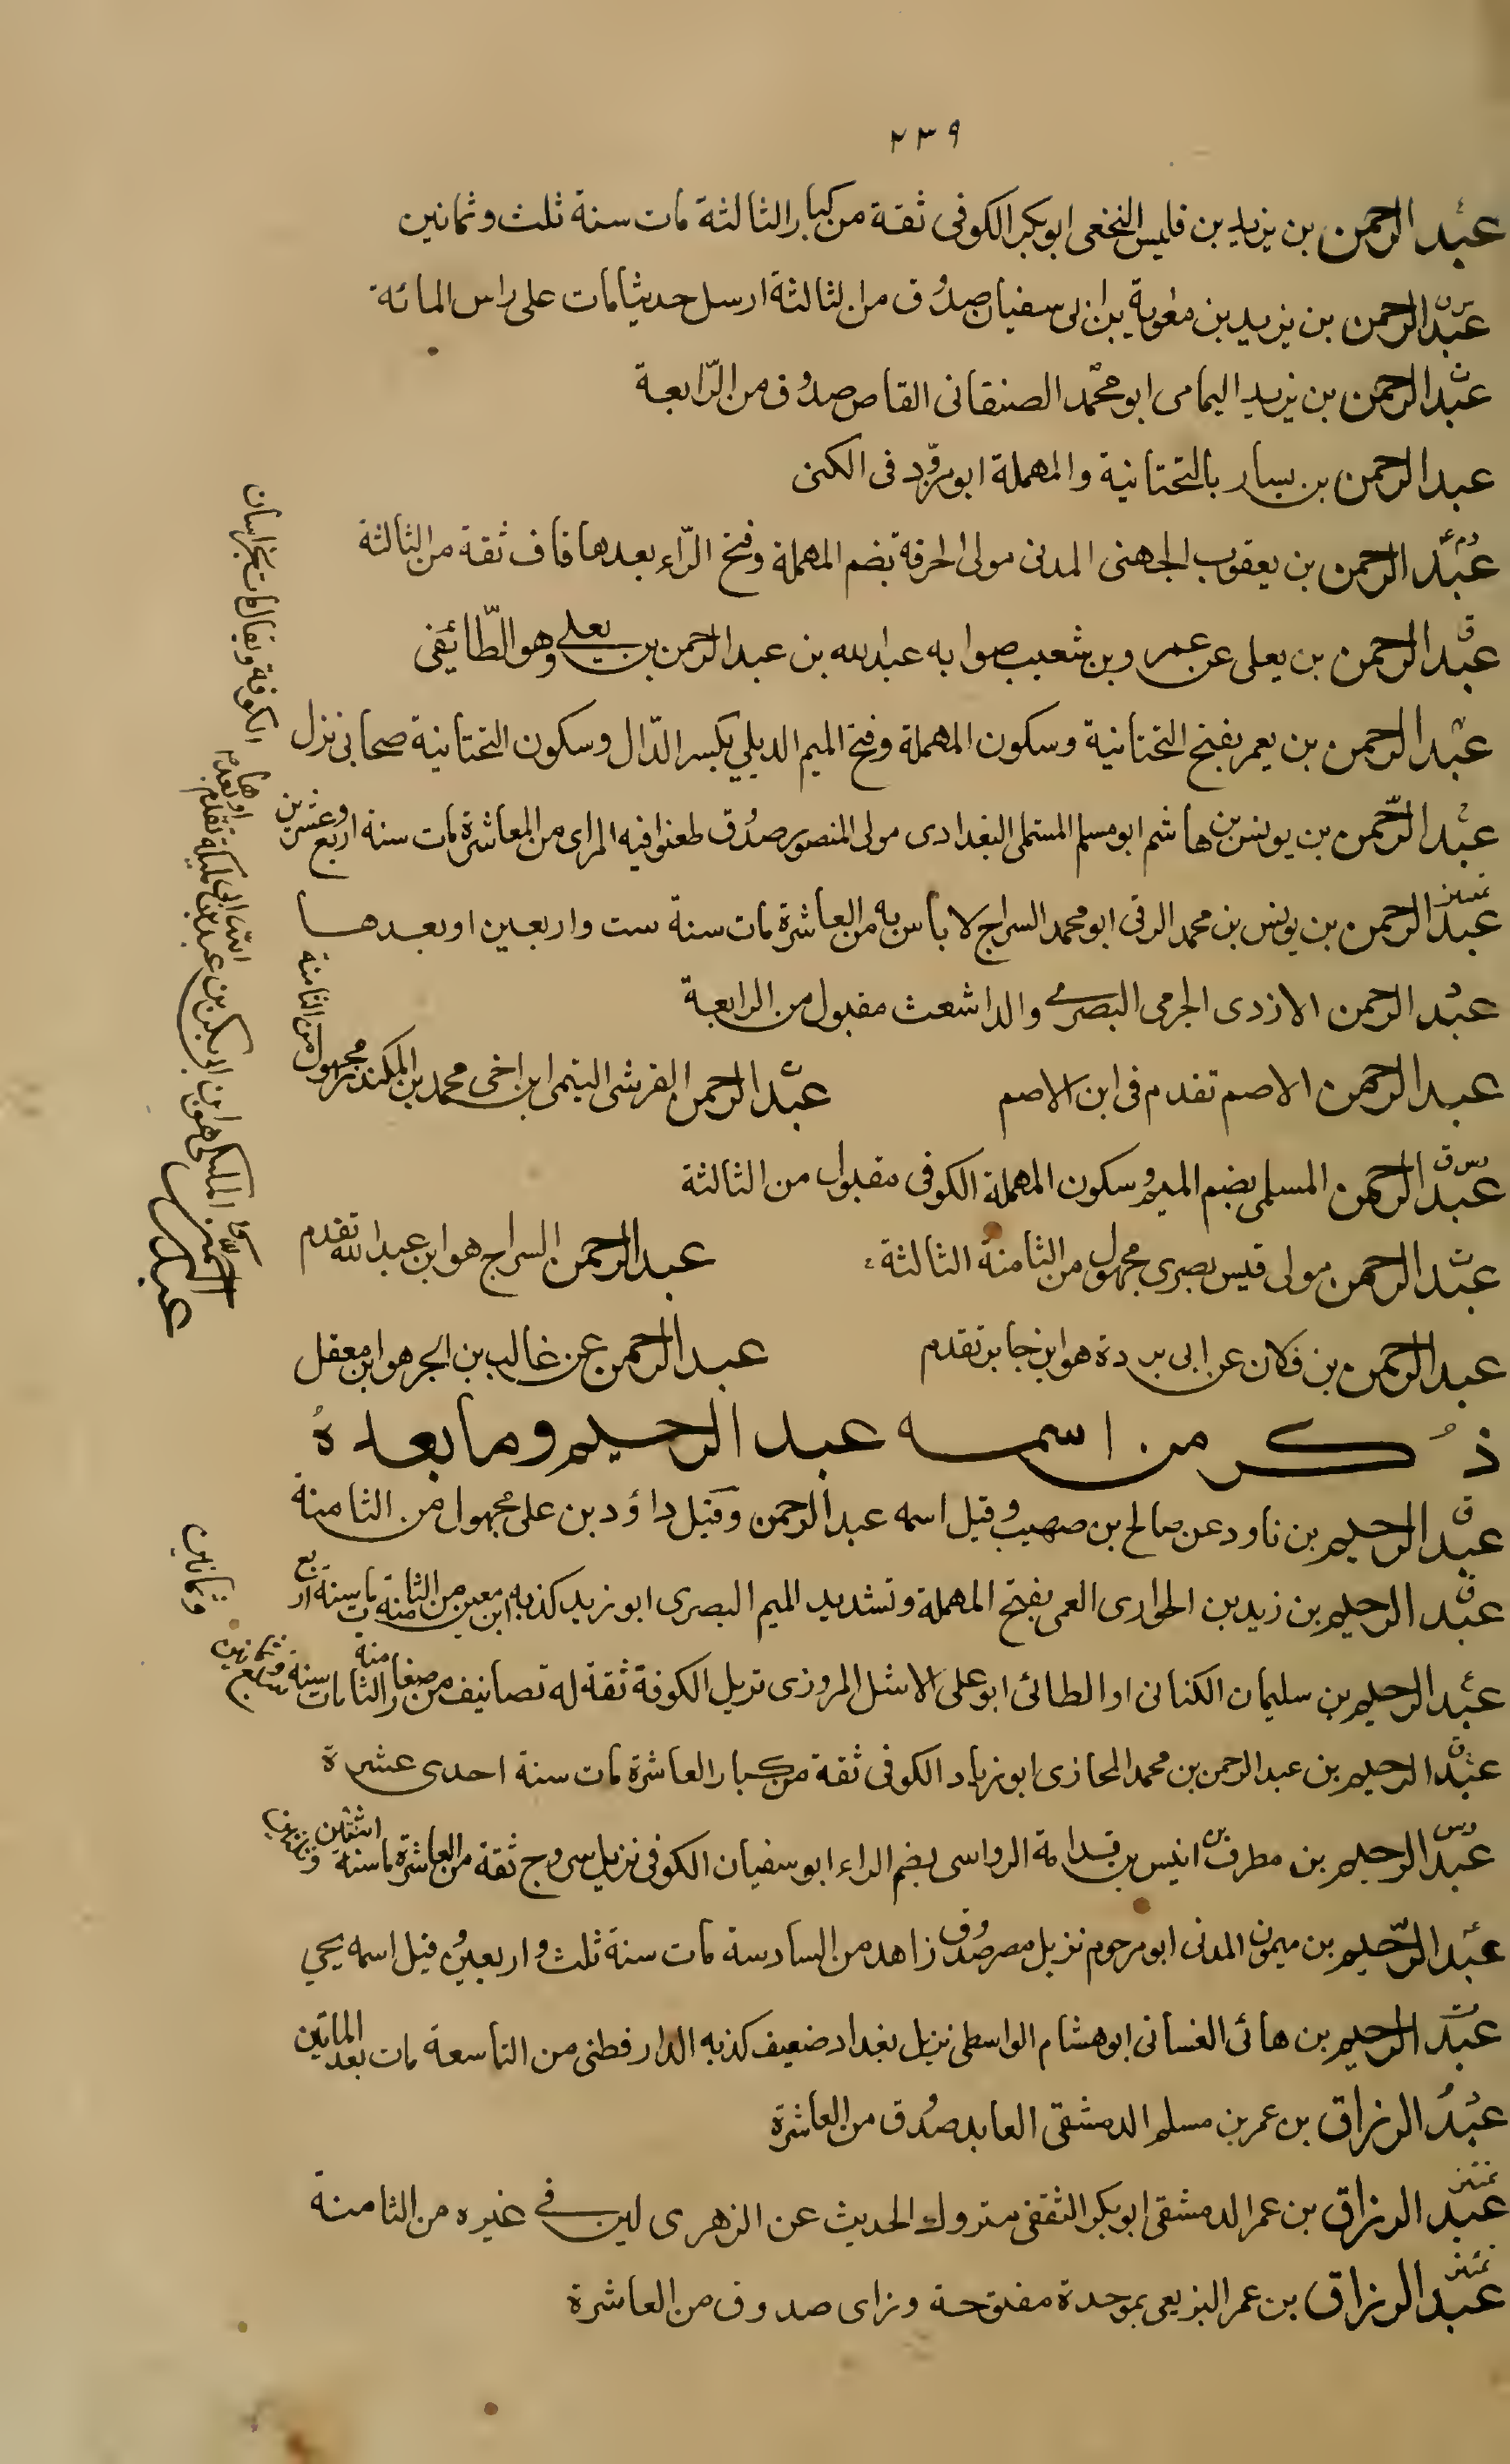 ٢٣٩
عبد الرحمن بن يزيد بن قليس النخعى ابو بكر الكوفى ثقة من كبار الثالثة مات سنة ثلث وثمانين
عبد الرحمن بن يزيد بن معوية بن ابى سفيان صدوق من الثالثة ارسل حديثا مات على راس المائة
عبد الرحمن بن يزيد اليمامى ابو محمد الصنقانى القاص صدوق من الرّابعة
عبد الرحمن بن يسار بالتحتانية والمهملة ابو مزرّد فى الكنى
عبد الرحمن بن يعقوب الجهنى المدنى مولى الحرقة بضم المهملة وفتح الرّاء بعدها قاف ثقة من الثالثة
عبد الرحمن بن يعلى عن عمرو بن شعيب صوابه عبد الله بن عبد الرحمن بن يعلى وهو الطّائفى
عبد الرحمن بن يعمر بفتح التحتانية وسكون المهملة وفتح الميم الديلي بكسر الدّال وسكون التحتانية صحابى نزل
الكوفة ويقال مات بخراسان
عبد الرّحمن بن يونس بن هاشم ابو مسلم المستملى البغدادى مولى المنصور صدوق طعنوا فيه للراى من العاشرة مات سنة اربع وعشرين
اوبعدها
عبد الرحمن بن يونس بن محمد الرقى ابو محمد السراج لا بأس به من العاشرة مات سنة ست واربعين او بعدها
عبد الرحمن الازدى الجرمى البصرى والد اشعث مقبول من الرابعة
عبد الرحمن الاصم تقدم فى ابن الاصم
عبد الرحمن القرشى التيمى ابن اخى محمد بن المكندر مجهول من الثامنة
عبد الرحمن المسلى بضم الميم وسكون المهملة الكوفى مقبول من الثالثة
عبد الرحمن المليكى هو ابن ابى بكر بن عبيد بن ابى مليكة تقدم
عبد الرحمن مولى قيس بصرى مجهول من الثامنة الثالثة
عبد الرحمن السراج هو ابن عبد الله تقدم
عبد الرحمن بن فلان عن ابى بردة هو ابن جابر تقدم
عبد الرحمن عن غالب بن ابجر هو ابن معقل
ذكر من اسمه عبد الرحيم وما بعده
عبد الرحيم بن داود عن صالح بن صهيب وقيل اسمه عبد الرحمن وقيل داؤد بن على مجهول من الثامنة
عبد الرحيم بن زيد بن الحوارى العمى بفتح المهملة وتشديد الميم البصرى ابو زيد كذبه ابن معين من الثامنة مات سنة اربع
وثمانين
عبد الرحيم بن سليمان الكنانى او الطائى ابو على الاشل المروزى نزيل الكوفة ثقة له تصانيف من صغار الثامنة مات سنة سبع وثمانين
عبد الرحيم بن عبد الرحمن بن محمد المحاربى ابو زياد الكوفى ثقة من كبار العاشرة مات سنة احدى عشرة
عبد الرحيم بن مطرف بن انيس بن قدامة الرواسى بضم الراء ابو سفيان الكوفى نزيل سروج ثقة من العاشرة مات سنة اثنتين وثلاثين
عبد الرّحيم بن ميمون المدنى ابو مرحوم نزيل مصر صدوق زاهد من السادسة مات سنة ثلث واربعين وقيل اسمه يحيى
عبد الرحيم بن هائى الغسانى ابو هشام الواسطى نزيل بغداد ضعيف كذبه الدارقطنى من التاسعة مات بعد المائتين
عبد الرزاق بن عمر بن مسلم الدمشقى العابد صدوق من العاشرة
عبد الرزاق بن عمر الدمشقى ابو بكر الثقفى متروك الحديث عن الزهرى لين فى غيره من الثامنة
عبد الرزاق بن عمر البزيعى بموحدة مفتوحة وزاى صدوق من العاشرة